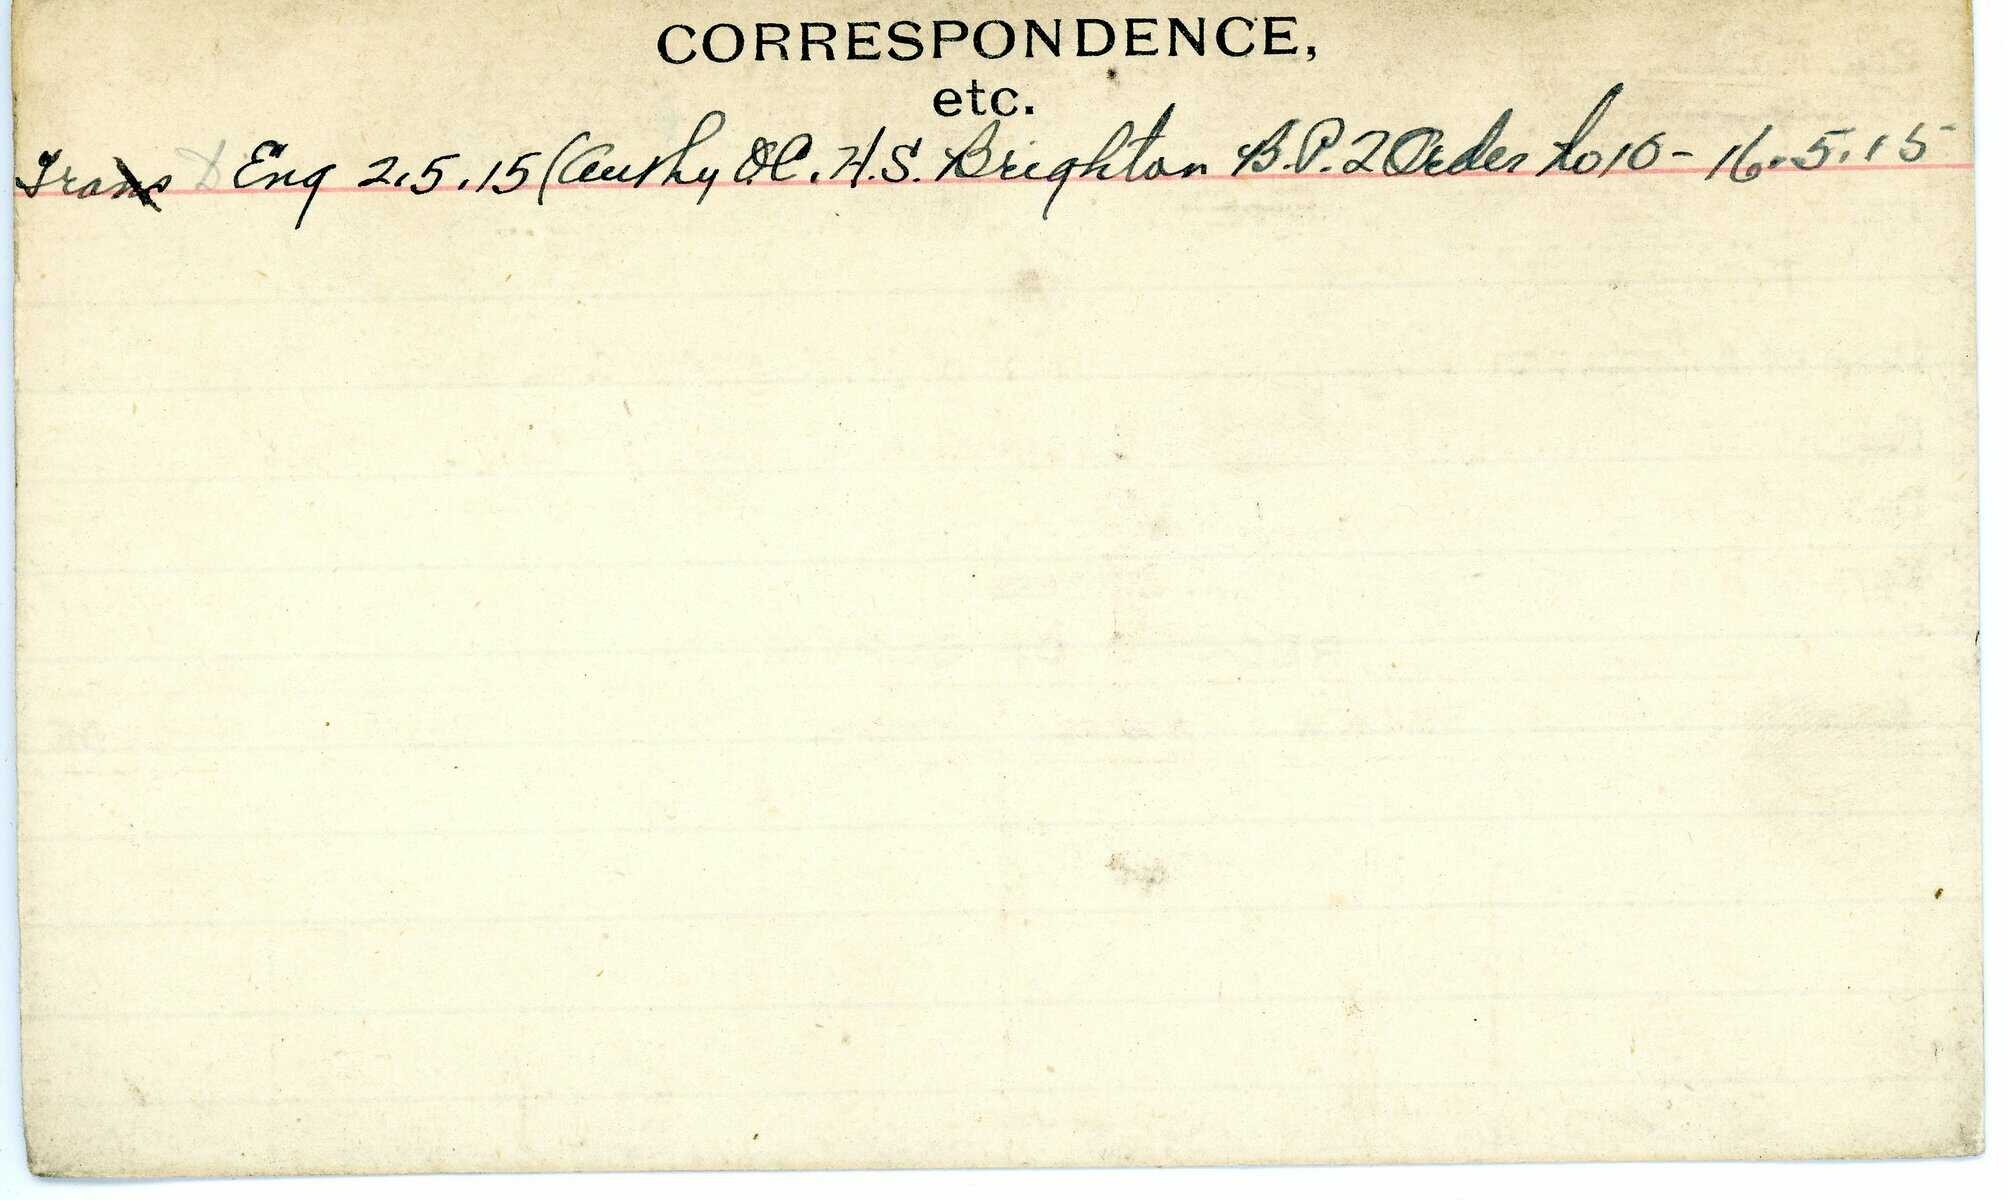 CORRESPONDENCE,
etc.
Trans Eng 2.5.15 (Authy O.C. H.S. Brighton B.P. 2 Order No 10 - 16.5.15